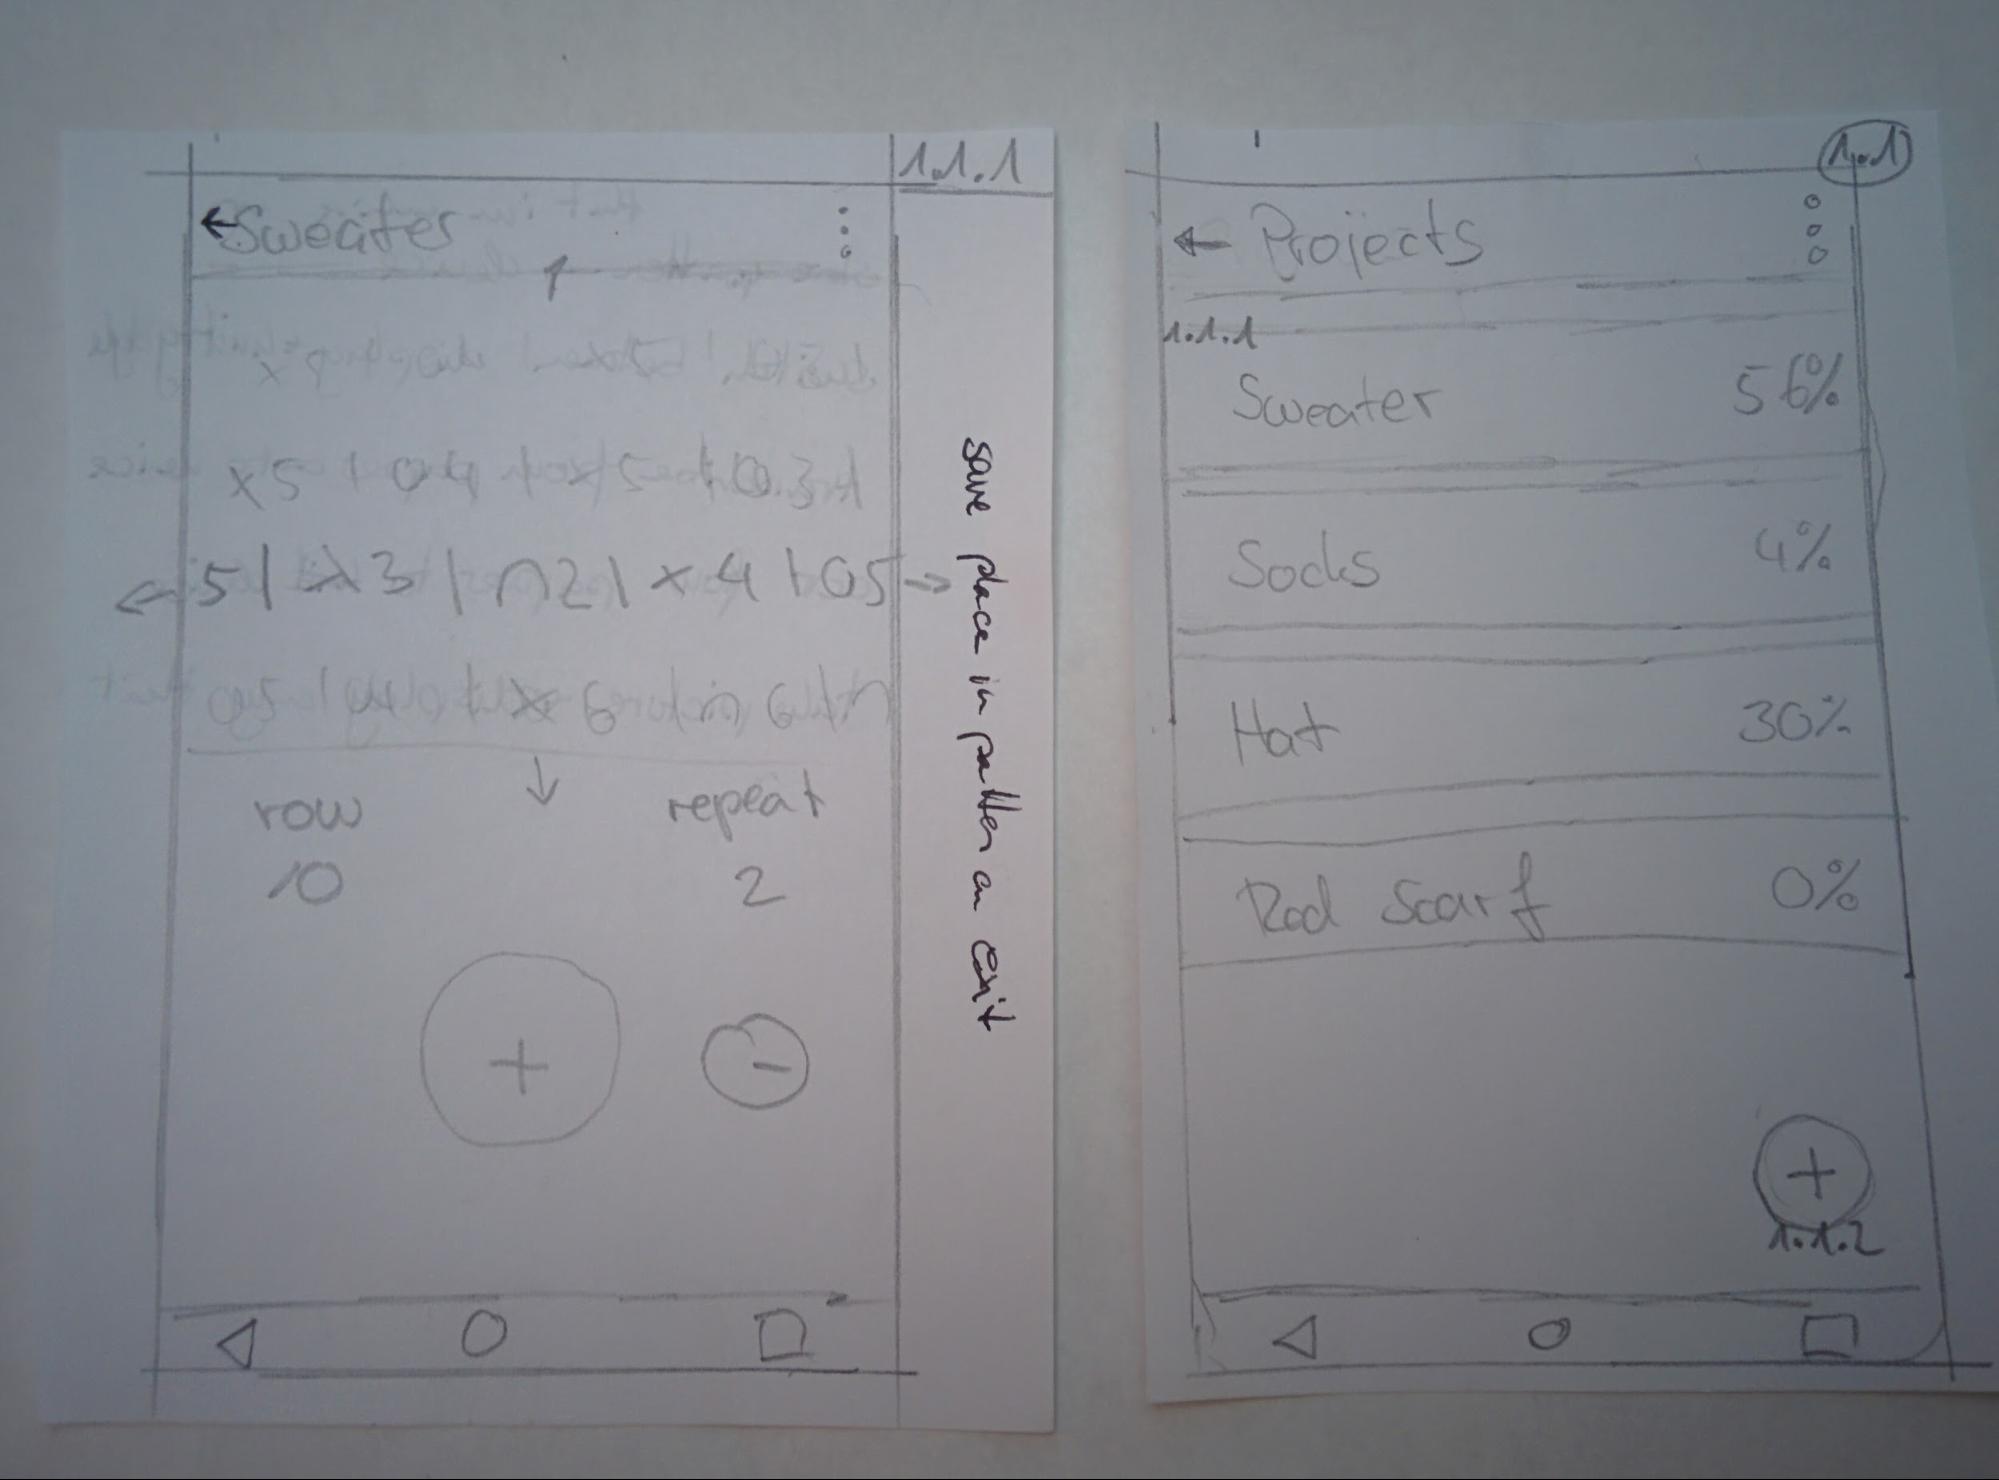 1.1.1
← Sweater
x5 | 04 | x5 | 0.3
5 | x3 | n2 | x 4 | 05
row
repeat
10
2
+
-
save place in patter on exit
1.1
← Projects
1.1.1
Sweater 56%
Socks 4%
Hat 30%
Red Scarf 0%
+
1.1.2